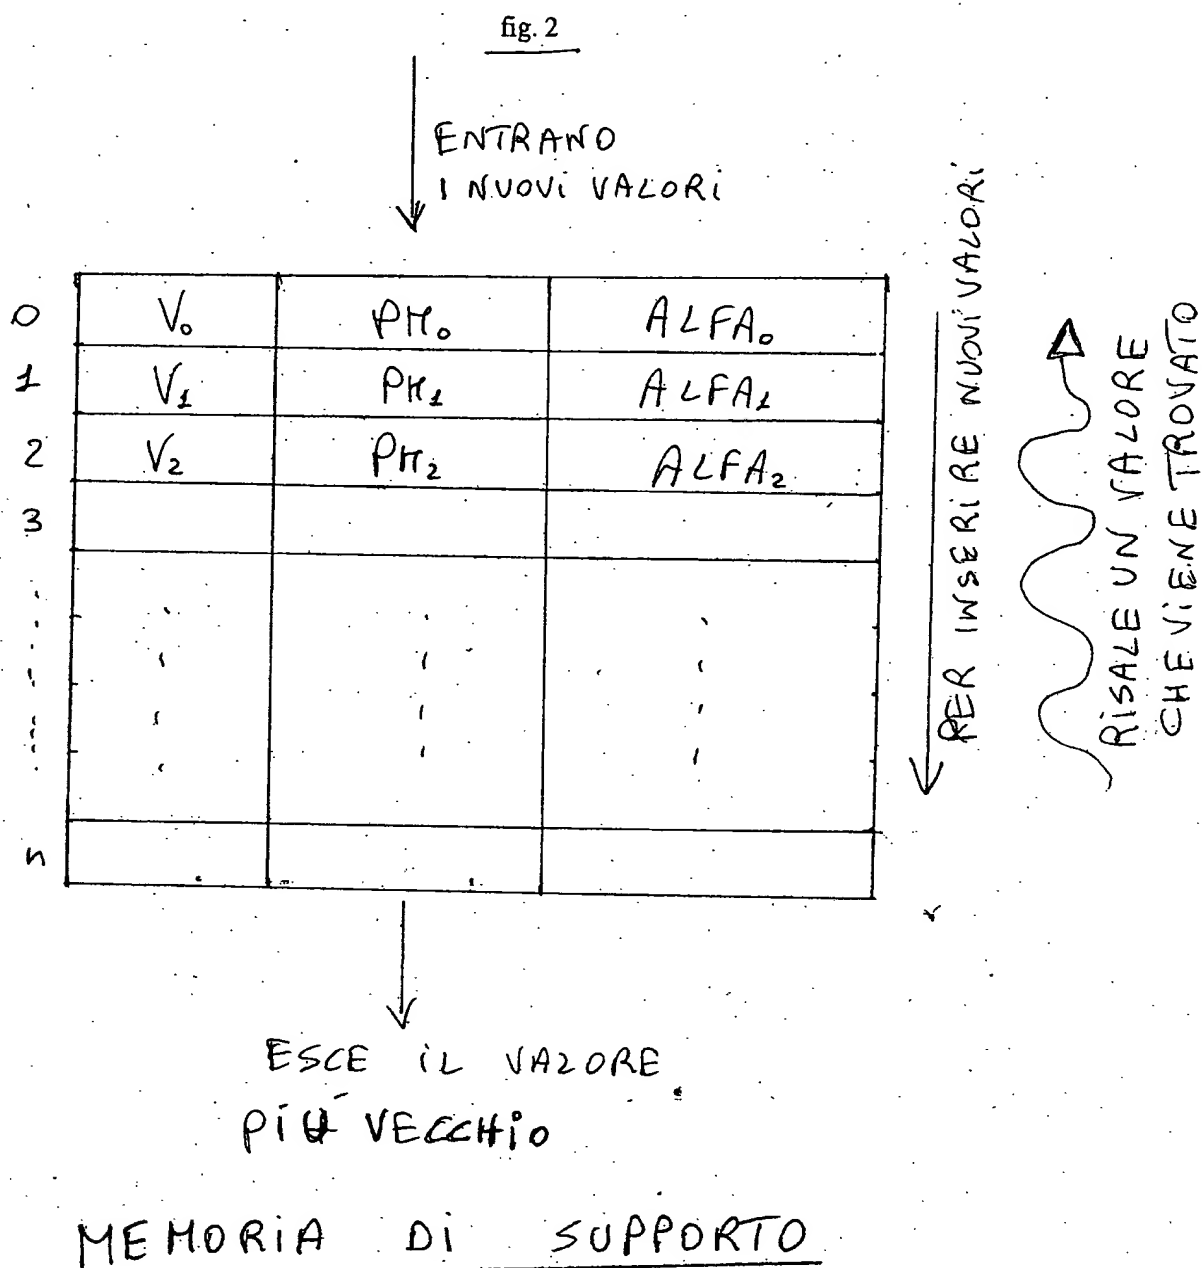 fig. 2
ENTRANO
I NUOVI VALORI
0 V₀ PM₀ ALFA₀
1 V₁ PM₁ ALFA₁
2 V₂ PM₂ ALFA₂
3
n
PER INSERIRE NUOVI VALORI
RISALE UN VALORE
CHE VIENE TROVATO
ESCE IL VALORE
PIÙ VECCHIO
MEMORIA DI SUPPORTO